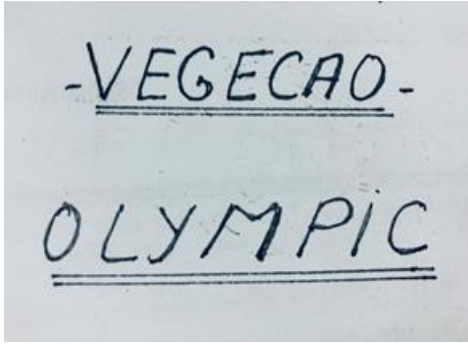 -VEGECAO-
OLYMPIC